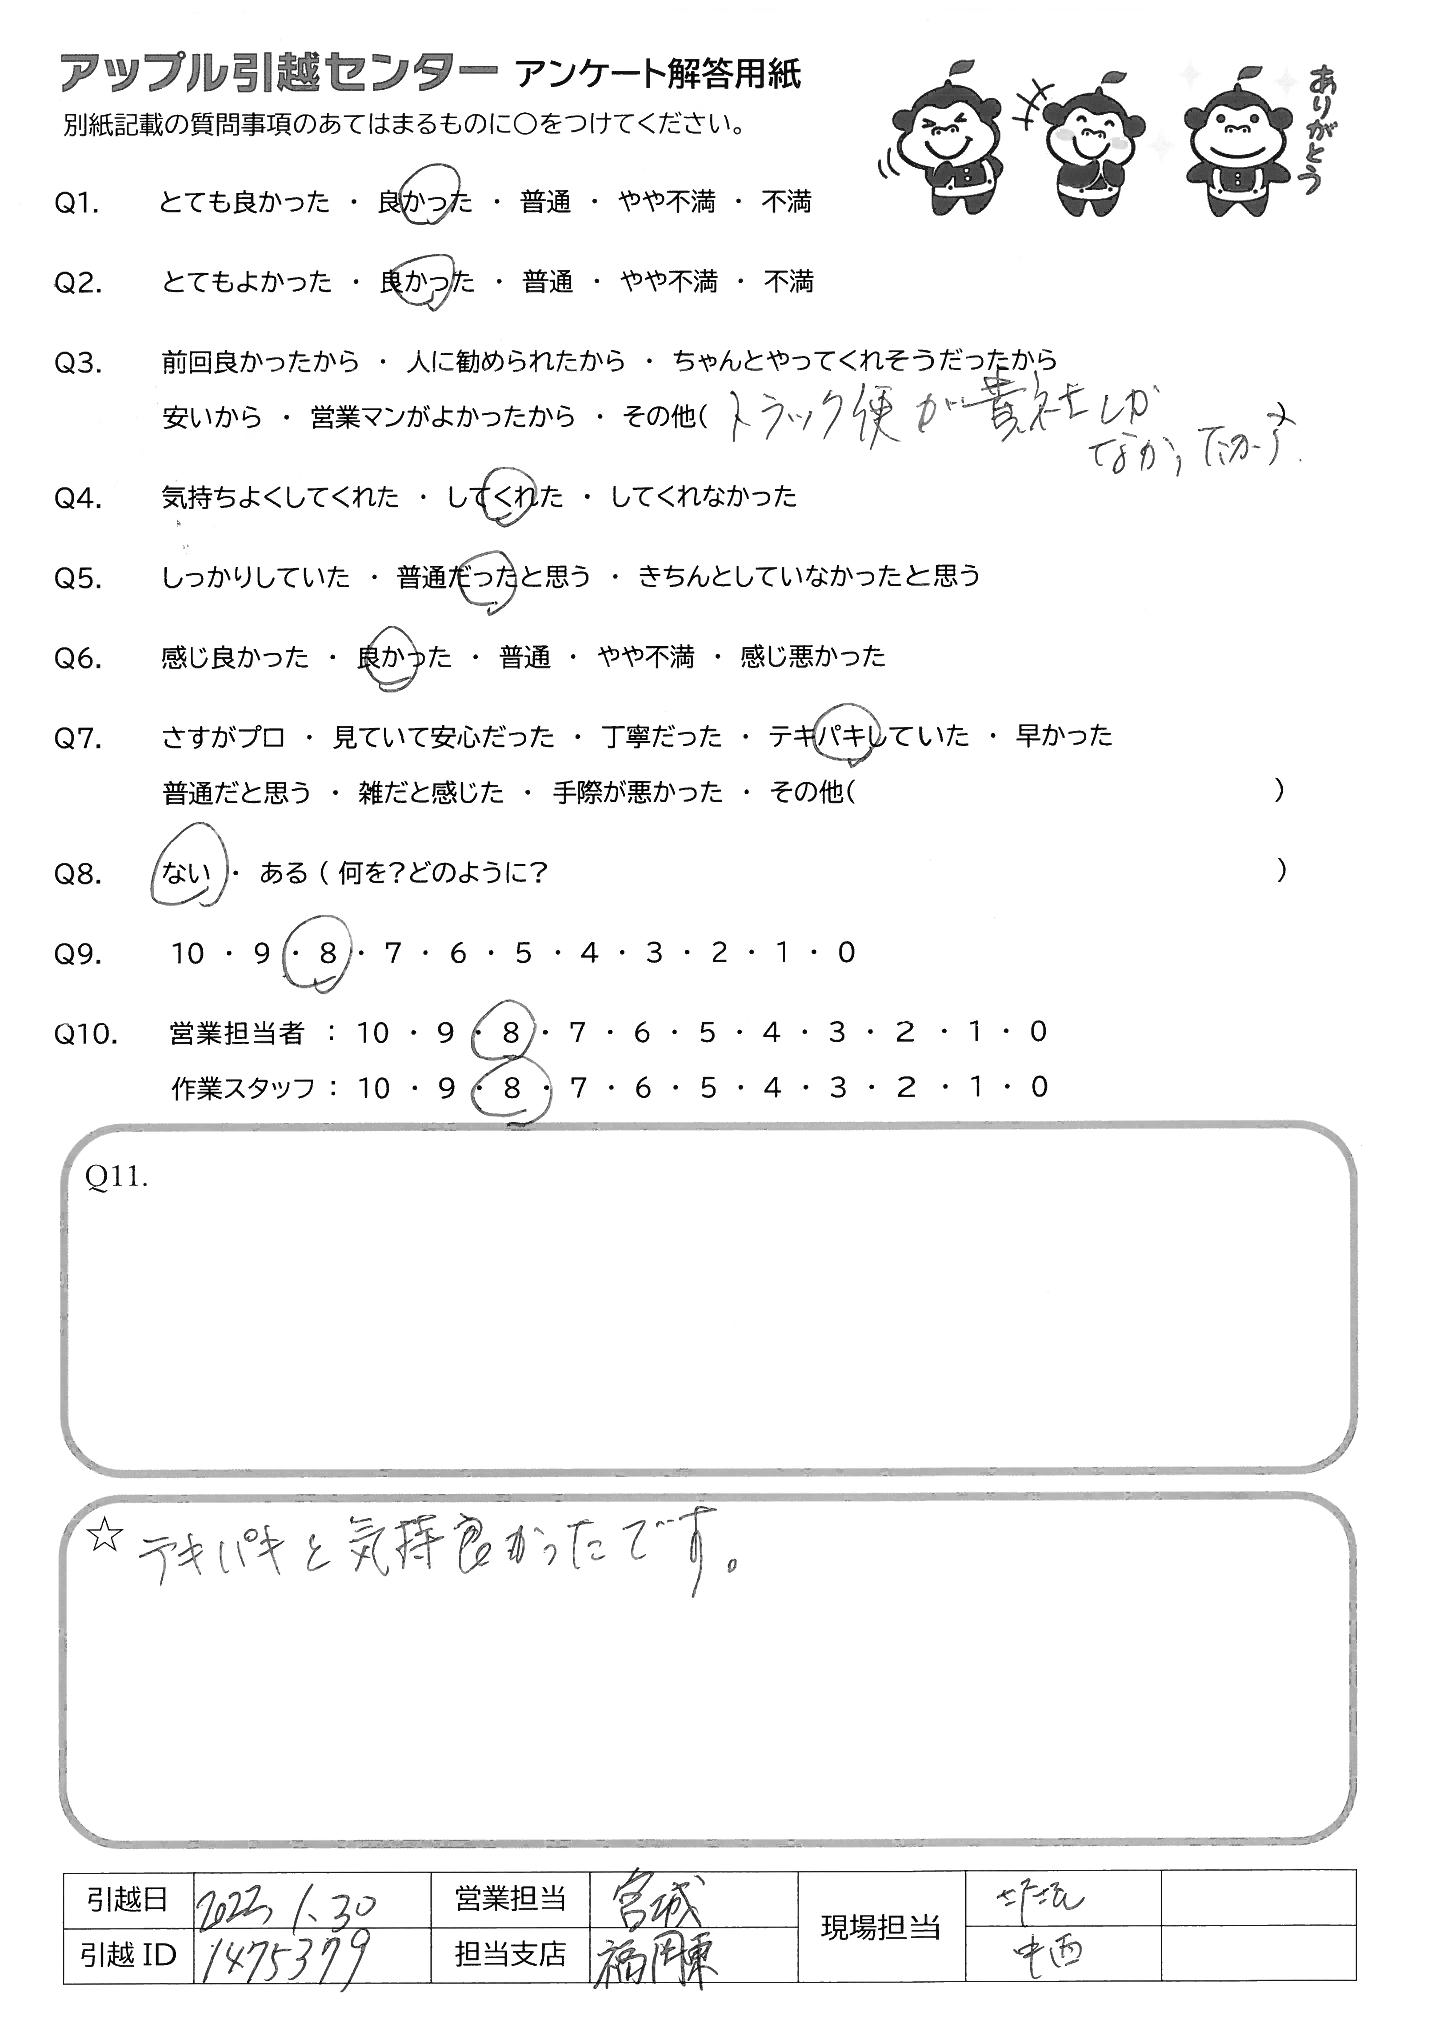 アップル引越センター アンケート解答用紙
別紙記載の質問事項のあてはまるものに○をつけてください。
ありがとう
Q1. とても良かった ・ 良かった ・ 普通 ・ やや不満 ・ 不満
Q2. とてもよかった ・ 良かった ・ 普通 ・ やや不満 ・ 不満
Q3. 前回良かったから ・ 人に勧められたから ・ ちゃんとやってくれそうだったから
安いから ・ 営業マンがよかったから ・ その他( トラック便が貴社しか
なかったから
Q4. 気持ちよくしてくれた ・ してくれた ・ してくれなかった
Q5. しっかりしていた ・ 普通だったと思う ・ きちんとしていなかったと思う
Q6. 感じ良かった ・ 良かった ・ 普通 ・ やや不満 ・ 感じ悪かった
Q7. さすがプロ ・ 見ていて安心だった ・ 丁寧だった ・ テキパキしていた ・ 早かった
普通だと思う ・ 雑だと感じた ・ 手際が悪かった ・ その他( )
Q8. ない ・ ある ( 何を?どのように? )
Q9. 10 ・ 9 ・ 8 ・ 7 ・ 6 ・ 5 ・ 4 ・ 3 ・ 2 ・ 1 ・ 0
Q10. 営業担当者 : 10 ・ 9 ・ 8 ・ 7 ・ 6 ・ 5 ・ 4 ・ 3 ・ 2 ・ 1 ・ 0
作業スタッフ : 10 ・ 9 ・ 8 ・ 7 ・ 6 ・ 5 ・ 4 ・ 3 ・ 2 ・ 1 ・ 0
Q11.
☆ テキパキと気持良かったです。
引越日 2022, 1. 30 営業担当 宮城 現場担当
引越 ID 1475379 担当支店 福岡東 中西